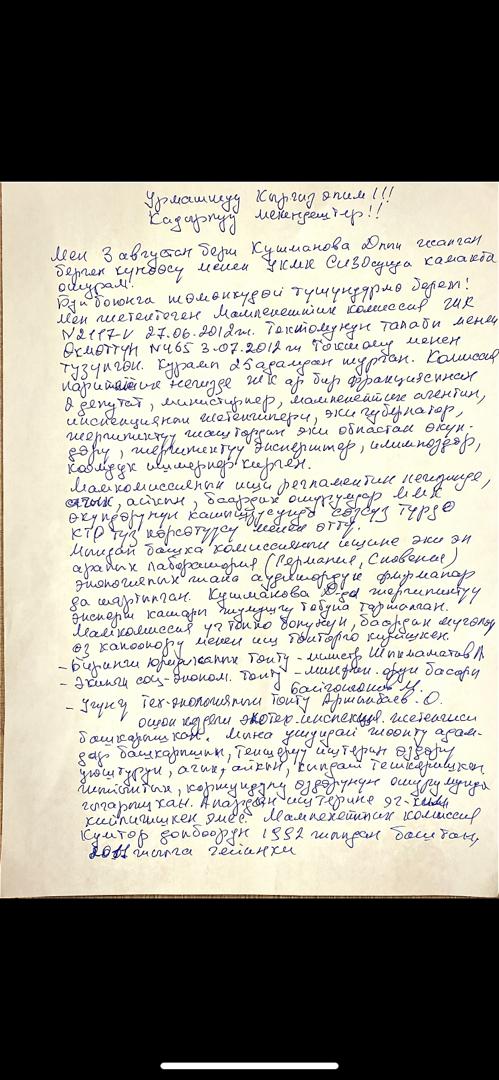 Урматтуу Кыргыз элим!!!
Кадырлуу мекендештер!!
Мен 3 августтан бери Кушманова Дтын жалган
берген күнөөсү менен УКМК СИЗОсунда камакта
отурам.
Бул боюнча төмөнкүдөй түшүндүрмө берем!
Мен жетектеген Мамлекеттик комиссия ЖК
N2117-V 27.06.2012ж. Токтомунун талабы менен
Өкмөттүн N465 3.07.2012ж Токтому менен
түзүлгөн. Курамы 25 адамдан турган. Комиссия
негизде ЖК ар бир фракциясынан
2 депутат, министрлер, мамлекеттик агенттик,
инспекциянын жетекчилери, эки губернатор,
жергиликтүү жаштардан эки областан өкүл-
дөрү, жергиликтүү эксперттер, илимпоздор,
коомдук ишмерлер кирген.
Мамкомиссиянын ишы регламентин негизинде,
ачык, айкын, баардык отурумдар ММК
өкүлдөрүнүн катышуусунда сөзсүз түрдө
КТР түз көрсөтүүсү менен өттү.
Мындай башка комиссиянын ишине эки эл
аралык лаборатория (Германия, Словения)
экологиялык жана аудитордук фирмалар
да тартылган. Кушманова Д-да жергиликтүү
эксперт катары жумушчу тобуна тартылган.
Мамкомиссия үч топко бөлүнүп, баардык мүчөлөр
өз каалоолору менен иш топторго киришкен.
- Биринчи юридикалык топту - министр Шыкмаматов А
- Экинчи соц-эконом. топту - мин.фин. орун басары
Байгончоков М.
- Үчүнчү тех-экологиялык топту Артыкбаев О.
ошол кездеги экотех.инспекция жетекчиси
башкарышкан. Мына ушундай жооптуу адам-
дар башкарышып, текшерүү иштерин өздөрү
уюштуруп, ачык, айкын, кылдат текшеришкен
жыйынтык, корутундуну өздөрүнүн отурумунда
чыгарышкан. Алардын иштерине эч-ким
кийлигишкен эмес. Мамлекеттик комиссия
Кумтор долбоорун 1992 жылдан баштап,
2011 жылга чейинки